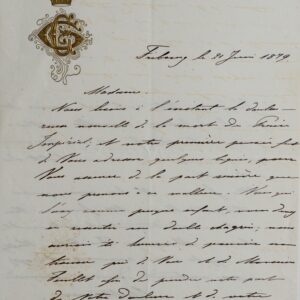 Fribourg le 21 Juin 1879
Madame
Nous lisons à l'instant la doulou-
reuse nouvelle de la mort du Prince
Impérial, et notre première pensée est
de Vous adresser quelques lignes, pour
Vous assurer de la part sincère que
nous prenons à ce malheur. Vous qui
l'avez connu presque enfant, vous devez
en ressentir un double chagrin; nous
avions eu le bonheur de
près de Vous et de Monsieur
de prendre notre part
de Votre douleur et de